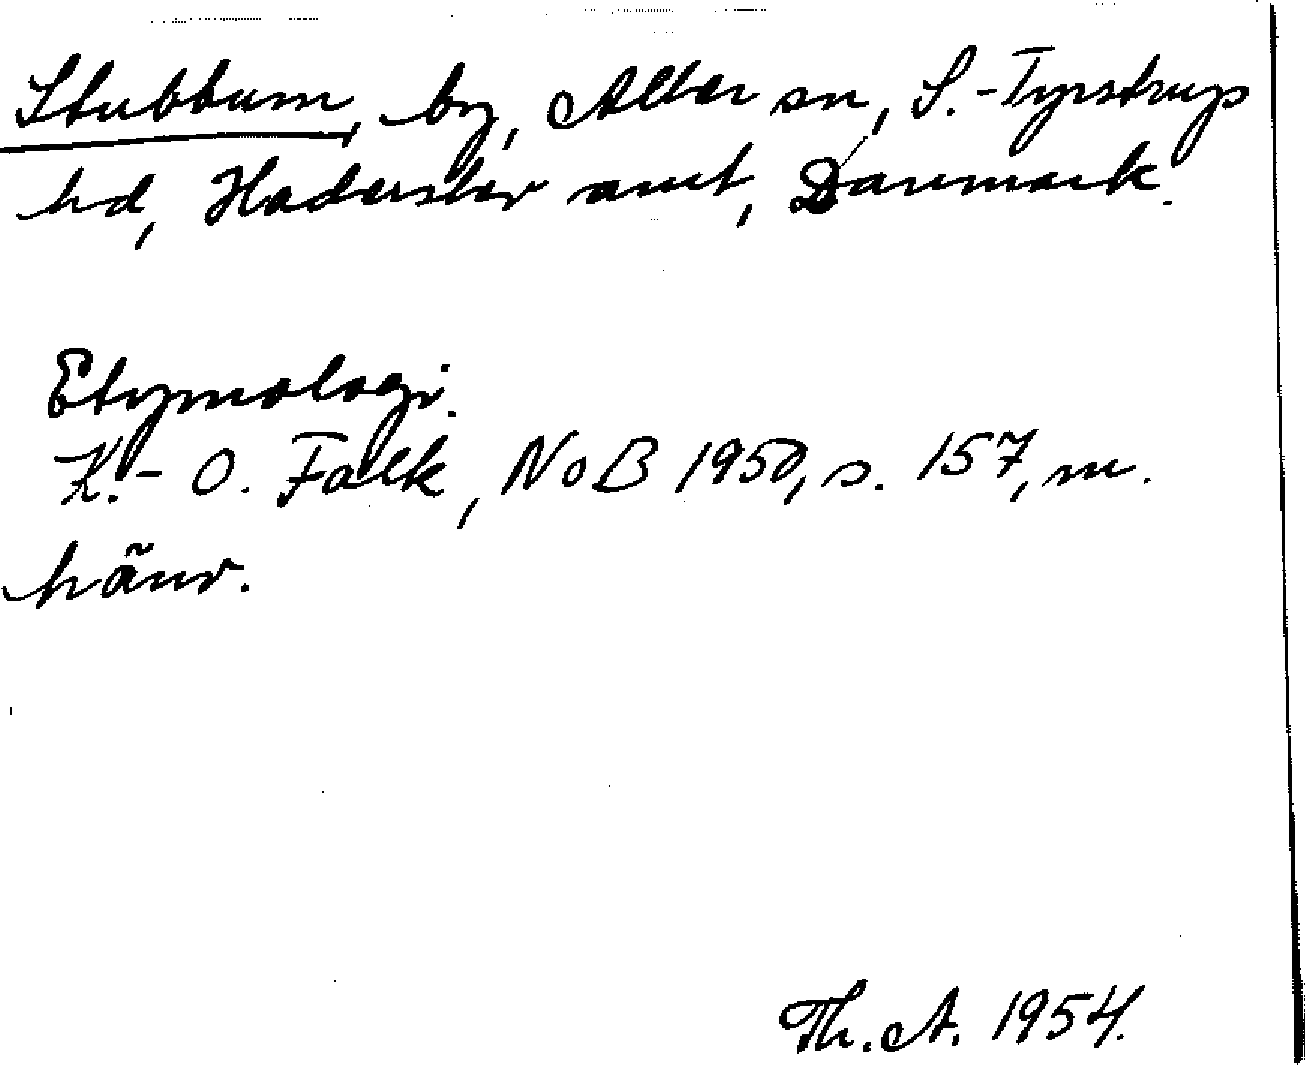 Stubbum, by, Aller sn, S.-Tyrstrups
hd, Haderslev amt, Danmark.
Etymologi.
K.-O. Falk, NoB 1950, s. 157, m.
hänv.
Th. A. 1954.